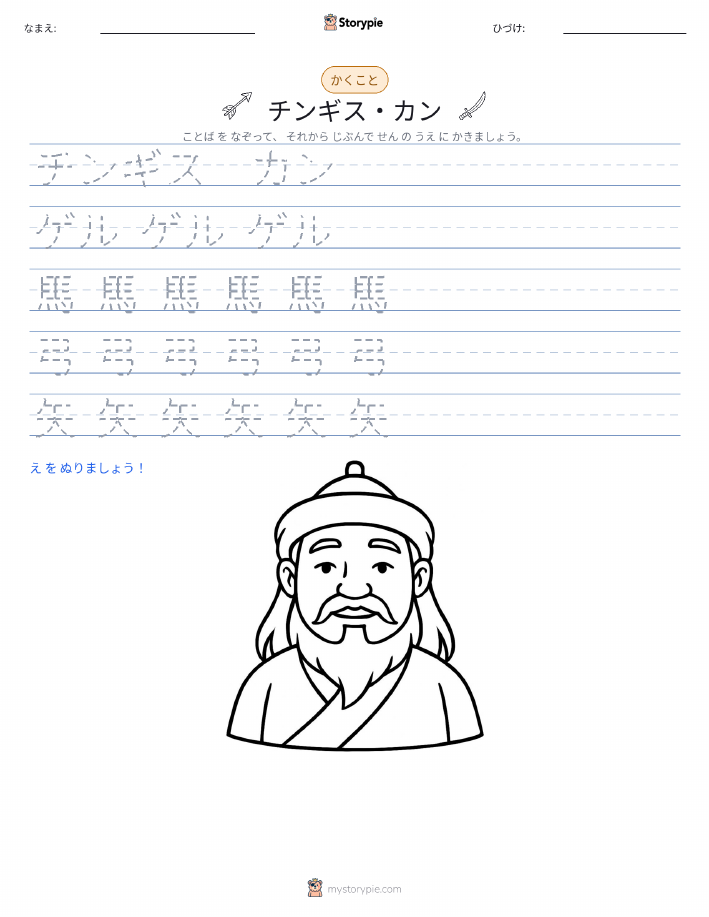 なまえ:
Storypie
ひづけ:
かくこと
チンギス・カン
ことば を なぞって、 それから じぶんで せん の うえ に かきましょう。
チンギス カン
ゲル ゲル ゲル
馬 馬 馬 馬 馬 馬
弓 弓 弓 弓 弓 弓
矢 矢 矢 矢 矢 矢
え を ぬりましょう！
mystorypie.com